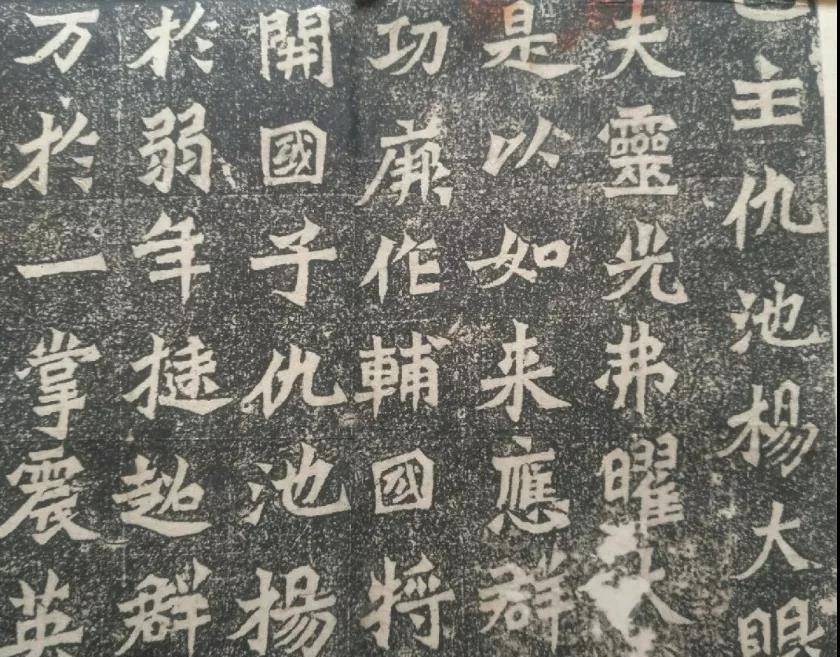 主仇池楊大眼
夫靈光弗曜大
是以如来應群
功厥作輔國将
開國子仇池楊
於弱年挺超群
万於一掌震英